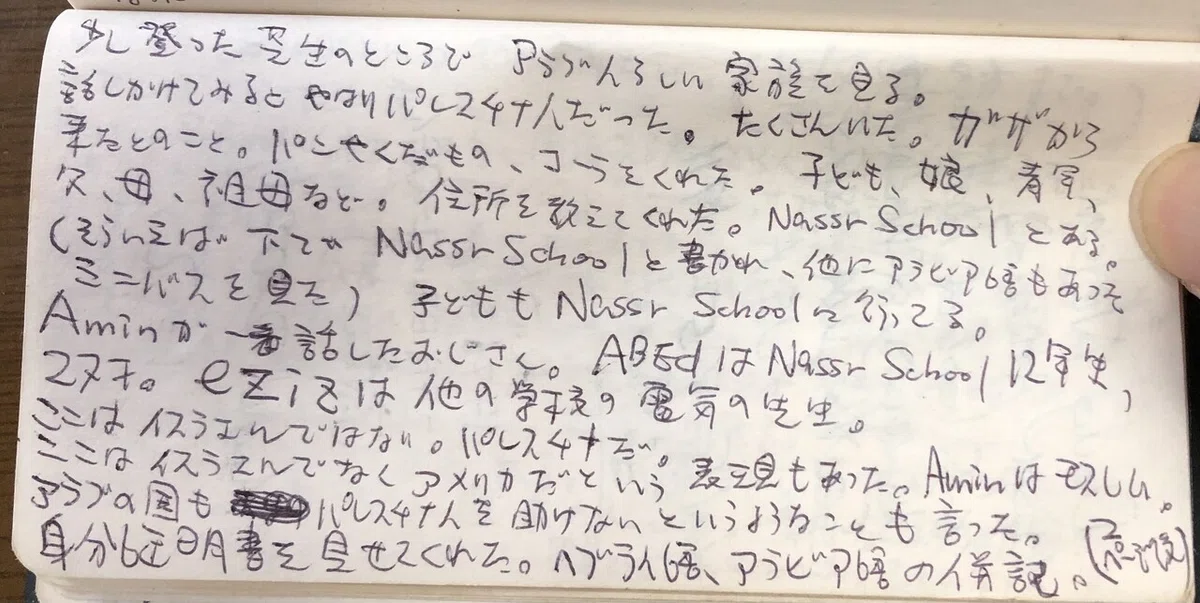 少し登った芝生のところで アラブ人らしい 家族を見る。
話しかけてみると やはりパレスチナ人だった。たくさんいた。ガザから
来たとのこと。パンやくだもの、コーラをくれた。子ども、娘、青年、
父、母、祖母など。住所を教えてくれた。Nassr School とある。
(そういえば 下でも Nassr School と書かれ、他にアラビア語もあった
ミニバスを見た) 子どもも Nassr School に行ってる。
Aminが一番話したおじさん。ABEdはNassr School 12年生,
ezizは他の学校の電気の先生。
ここはイスラエルではない。パレスチナだ。
ここはイスラエルでなくアメリカだという 表現もあった。Aminはモスレム。
アラブの国も パレスチナ人を助けないというようなことも言った。
身分証明書を見せてくれた。ヘブライ語、アラビア語の併記。